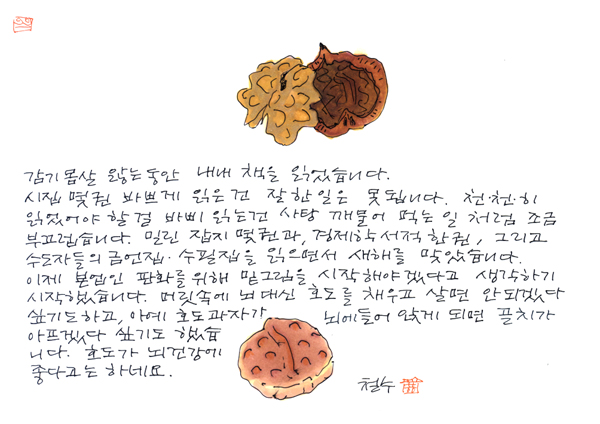 감기몸살 앓는동안 내내 책을 읽었습니다.
시집 몇권 바쁘게 읽은건 잘한일은 못됩니다. 천천히
읽었어야 할걸 바삐 읽는건 사탕 깨물어 먹는 일 처럼 조금
부끄럽습니다. 밀린 잡지 몇권과, 경제학 서적 한권, 그리고
수도자들의 금언집·수필집을 읽으면서 새해를 맞았습니다.
이제 본업인 판화를위해 밑그림을 시작해야겠다고 생각하기
시작했습니다. 머릿속에 뇌대신 호도를 채우고 살면 안되겠다
싶기도하고, 아예 호도과자가 뇌에들어 앉게 되면 골치가
아프겠다 싶기도 했습
니다. 호도가 뇌건강에
좋다고는 하네요.
철수